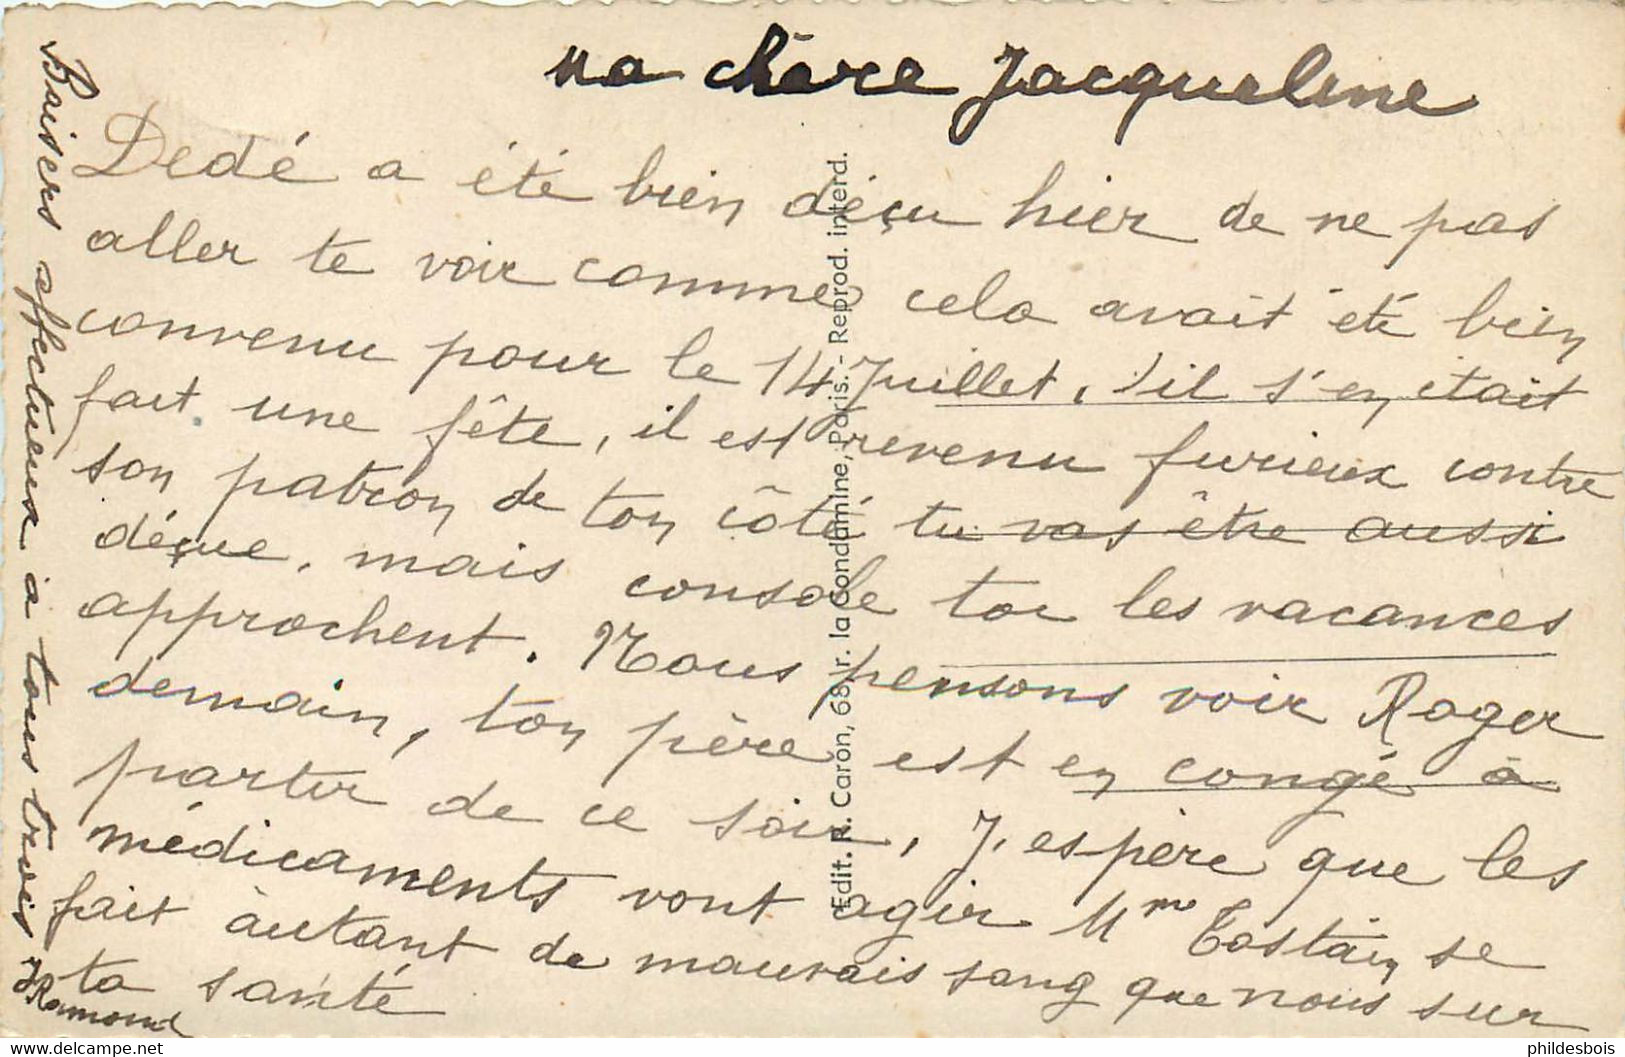 ma chère Jacqueline
Dedé a été bien déçu hier de ne pas
aller te voir comme cela avait été bien
convenu pour le 14 Juillet, s'il s'en était
fait une fête, il est revenu furieux contre
son patron de ton côté tu vas être aussi
déçue, mais console toi les vacances
approchent. Nous pensons voir Roger
demain, ton père est en congé à
partir de ce soir, J'espère que les
médicaments vont agir Mme Costain se
fait autant de mauvais sang que nous sur
ta santé
Baisers affectueux à tous trois
Edit. R. Caron, 68, r. la Condamine, Paris. - Reprod. interd.
phildesbois